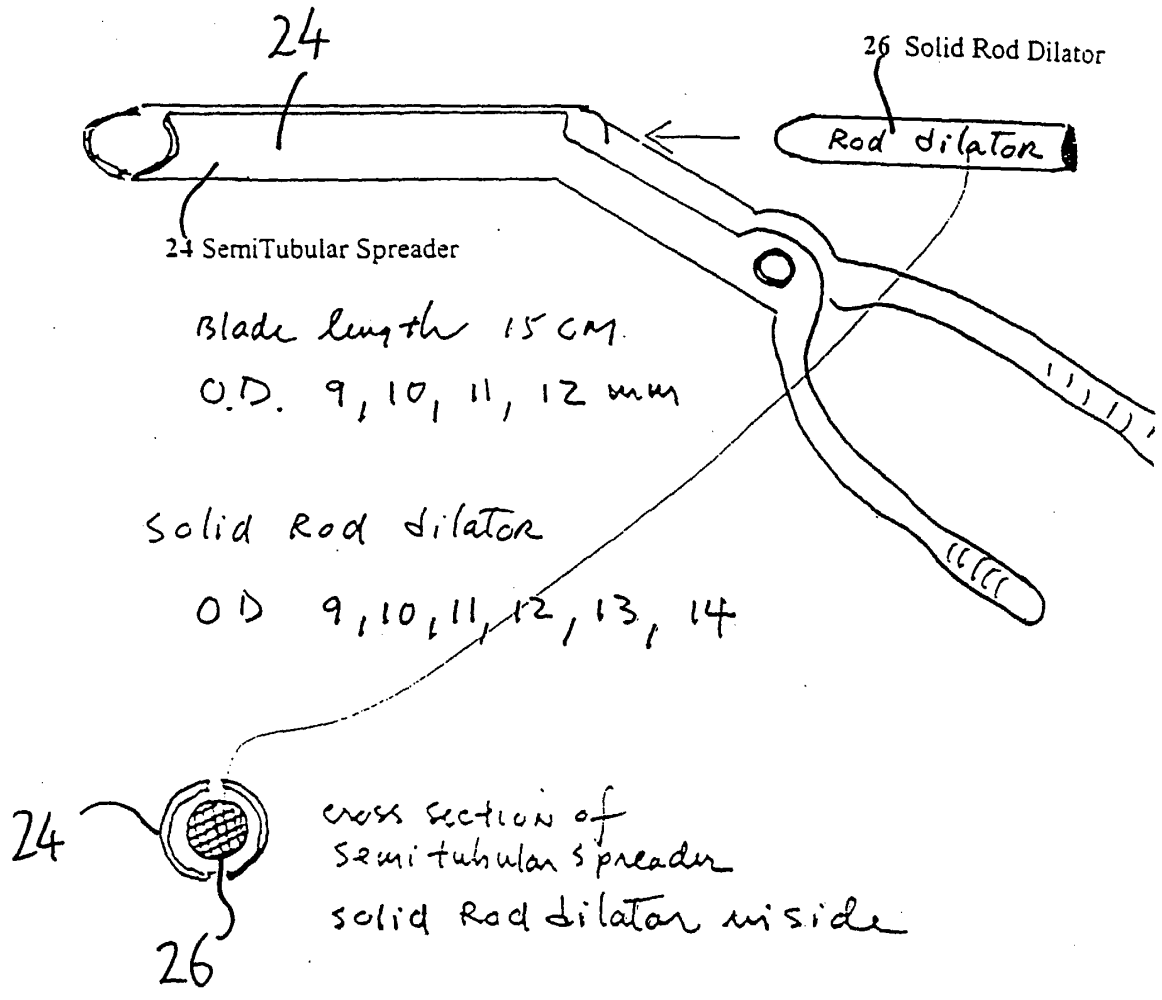 24
26 Solid Rod Dilator
Rod dilator
24 SemiTubular Spreader
Blade length 15 CM.
O.D. 9, 10, 11, 12 mm
Solid Rod dilator
OD 9, 10, 11, 12, 13, 14
24
cross section of
semitubular spreader
solid Rod dilator inside
26